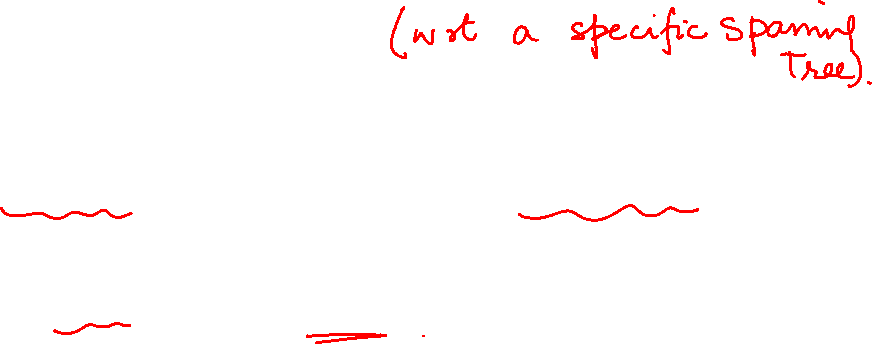 (wrt a specific spanning
Tree).